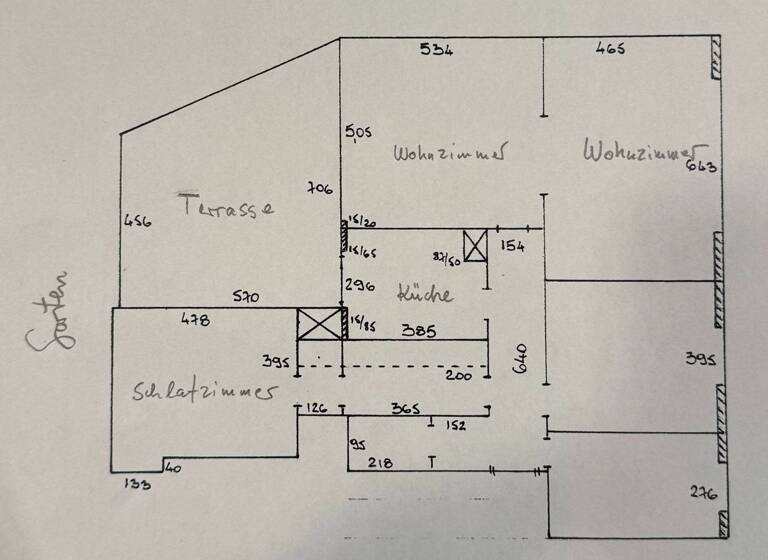 534
465
505
Wohnzimmer
Wohnzimmer
643
706
Terrasse
456
15/20
15/65
27/50
154
296
Küche
570
478
15/85
385
395
640
395
200
Schlafzimmer
Garten
126
365
152
95
40
218
133
276